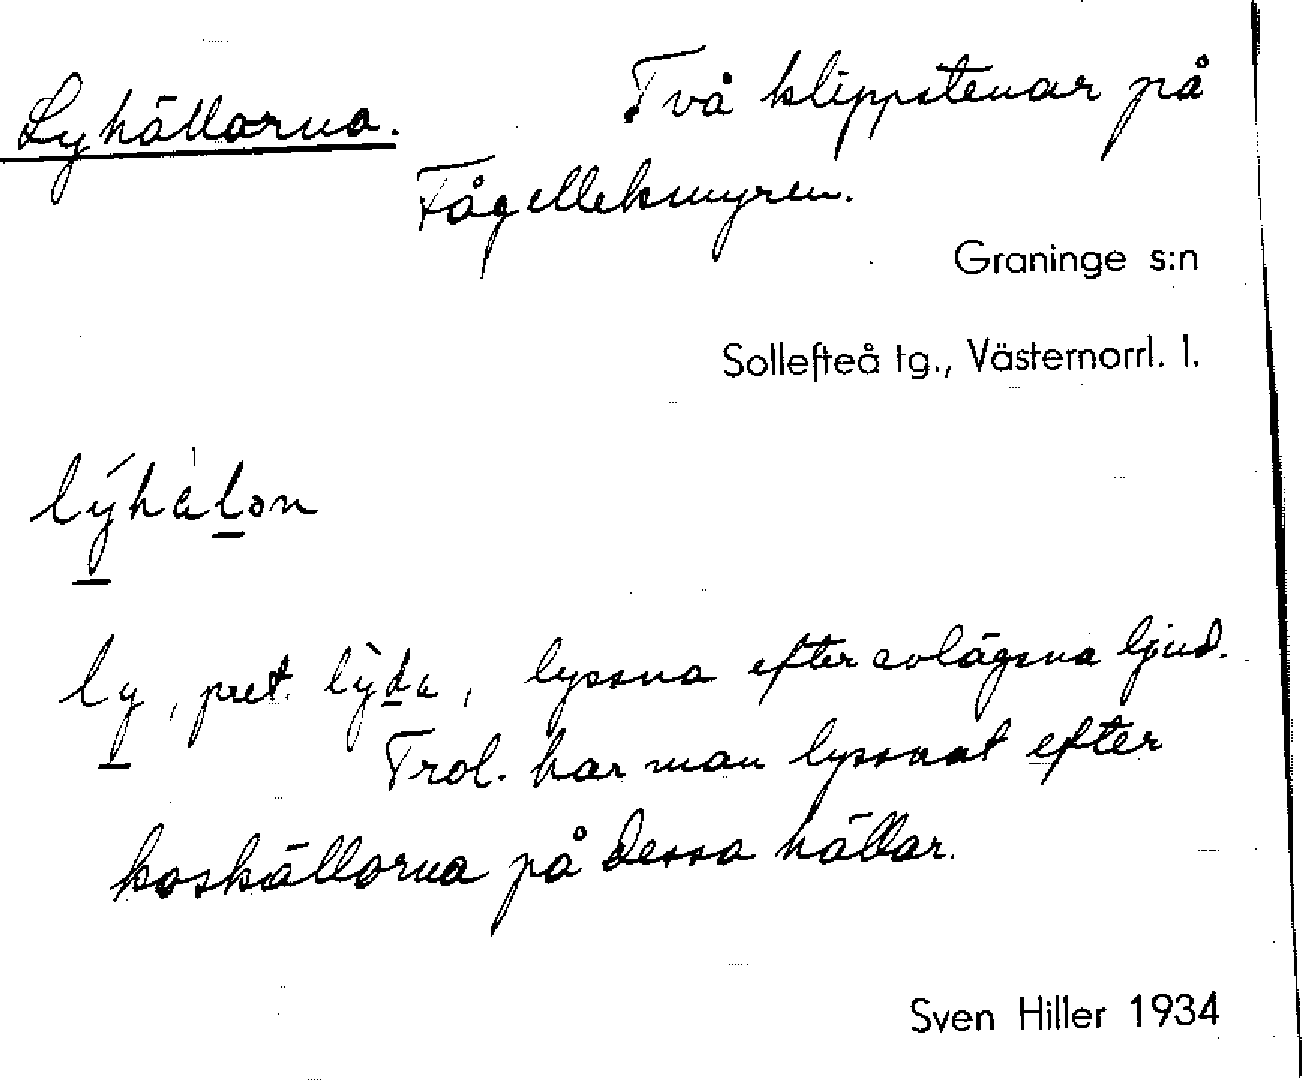 Lyhällorna. Två klippstenar på
Fågelleksmyren.
Graninge s:n
Sollefteå tg., Västernorrl. l.
lýhàlon
ly, pret. lỳda, lyssna efter avlägsna ljud.
Trol. har man lyssnat efter
koskällorna på dessa hällar.
Sven Hiller 1934